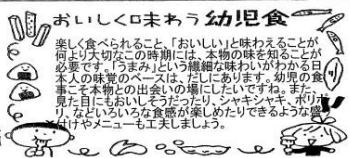 おいしく味わう幼児食
楽しく食べられること、「おいしい」と味わえることが
何より大切なこの時期には、本物の味を知ることが
必要です。「うまみ」という繊細な味わいがわかる日
本人の味覚のベースは、だしにあります。幼児の食
事こそ本物との出会いの場にしたいですね。また、
見た目にもおいしそうだったり、シャキシャキ、ポリポ
リ、などいろいろな食感が楽しめたりできるような盛
付けやメニューも工夫しましょう。